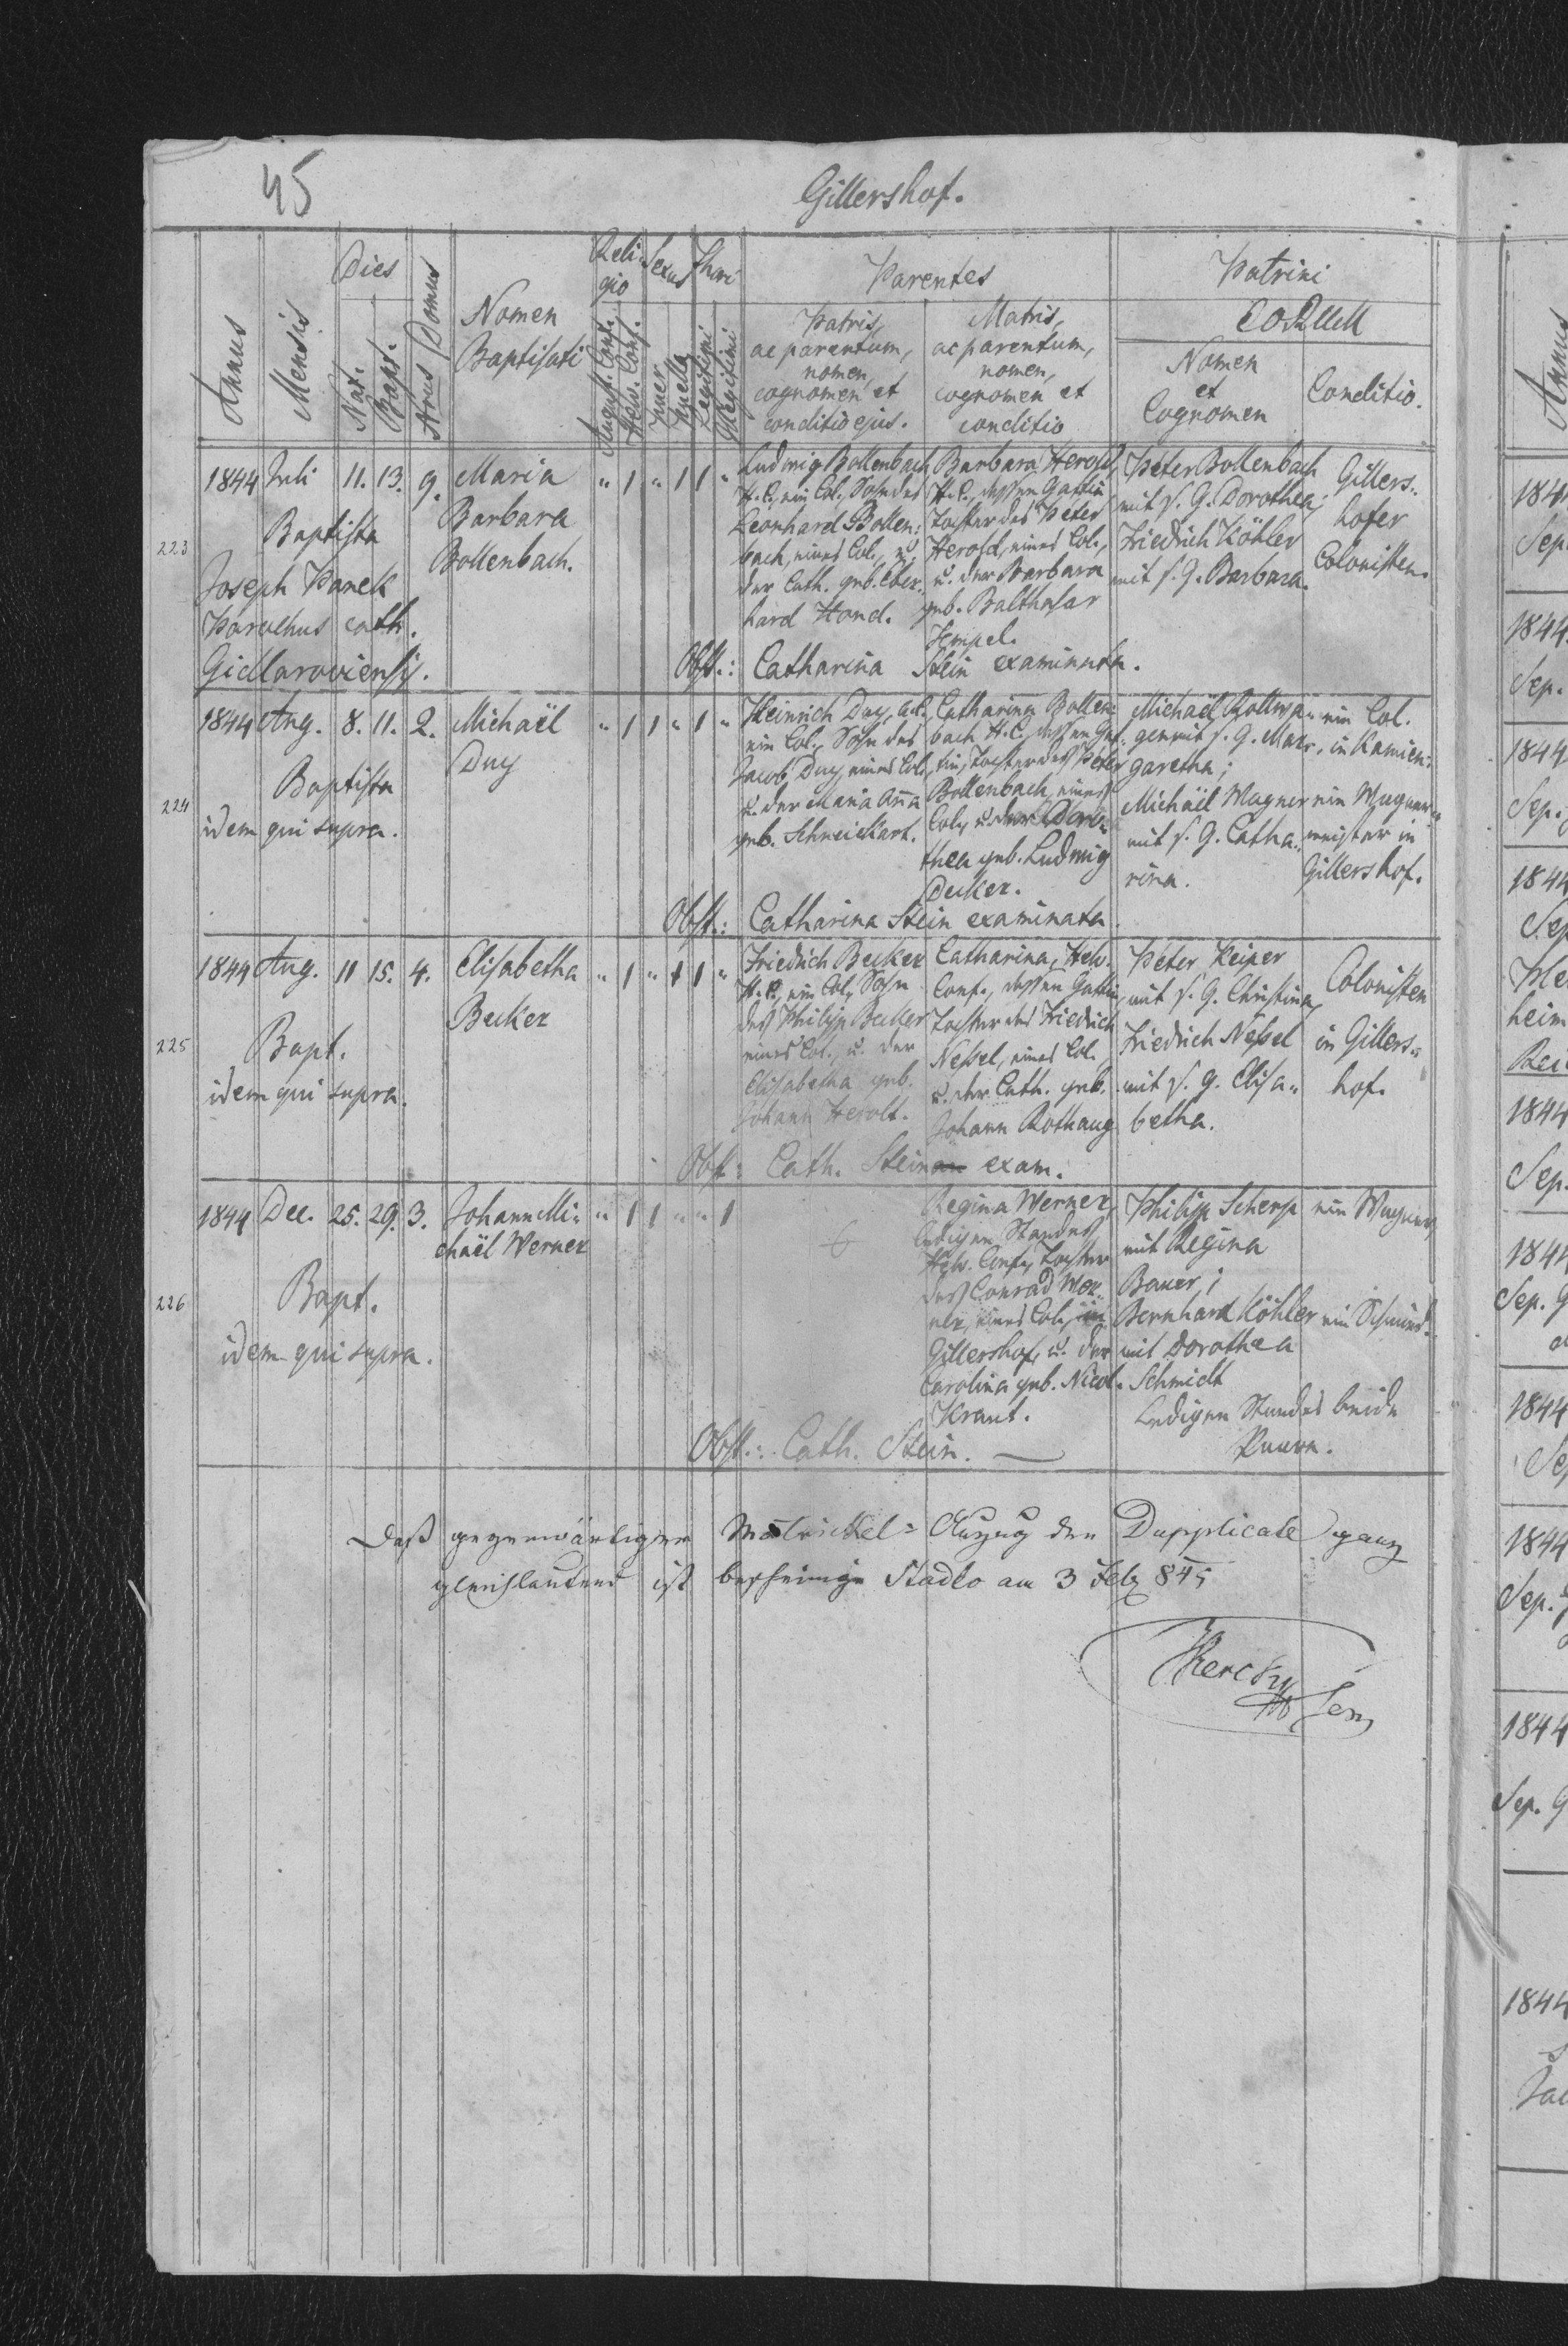 45
Gillershof.
Annus
Mensis
Dies
Nat.
Bapt.
Nrus Domus
Nomen
Baptisati
Reli-
gio
August. Conf.
Helv. Conf.
Sexus
Puer
Puella
Thori
Legitimi
Illegitimi
Parentes
Patris,
ac parentum,
nomen,
cognomen et
conditio ejus.
Matris,
ac parentum,
nomen,
cognomen et
conditio
Patrini
Nomen
et
Cognomen
Conditio.
223
1844 Juli 11. 13. 9.
Baptista
Joseph Panek
Parochus cath.
Gidlaroviensis.
Maria
Barbara
Bollenbach.
" 1 " 1 1 "
Ludwig Bollenbach
H. C., ein Col., Sohn des
Leonhard Bollen=
bach, eines Col., u.
der Cath. geb. Eber=
hard Hond.
Barbara Herold,
H. C., dessen Gattin
Tochter des Peter
Herold, eines Col.,
u. der Barbara
geb. Balthasar
Tempel.
Peter Bollenbach
mit s. G. Dorothea;
Friedrich Köhler
mit s. G. Barbara.
Gillers=
hofer
Colonisten.
Obst.: Catharina Stein examinata.
224
1844 Aug. 8. 11. 2.
Baptista
idem qui supra.
Michaël
Duy
" 1 1 " 1 "
Heinrich Duy,
ein Col., Sohn des
Jacob Duy, eines Col.,
u. der Maria Anna
geb. Schneickart.
Catharina Bollen=
bach H. C., dessen Gat=
tin, Tochter des Peter
Bollenbach, eines
Col., u. der Doro=
thea geb. Ludwig
Decker.
Michaël
gen mit s. G. Mar=
garetha;
Michaël Wagner
mit s. G. Catha=
rina.
ein Col.
in Kamien=
ein Wagner=
meister in
Gillershof.
Obst.: Catharina Stein examinata.
225
1844 Aug. 11 15. 4.
Bapt.
idem qui supra.
Elisabetha
Becker
" 1 " 1 1 "
Friedrich Becker
H. C., ein Col., Sohn
des Philipp Becker
eines Col., u. der
Elisabetha geb.
Johann Herolt.
Catharina, Helv.
Conf., dessen Gattin,
Tochter des Friedrich
Neßel, eines Col.,
u. der Cath. geb.
Johann Rothaug
Peter Keiper
mit s. G. Christina,
Friedrich Neßel
mit s. G. Elisa=
betha.
Colonisten
in Gillers=
hof.
Obst: Cath. Stein exam.
226
1844 Dec. 25. 29. 3.
Bapt.
idem qui supra.
Johann Mi=
chaël Werner
" 1 1 " " 1
Regina Werner,
ledigen Standes
Helv. Conf., Tochter
des Conrad Wer=
ner, eines Col., in
Gillershof, u. der
Carolina geb. Nicol.
Kraut.
Philipp Scherp
mit Regina
Bauer;
Bernhard Köhler
mit Dorothea
Schmidt
ledigen Standes beide
Paare.
ein Wagner,
ein Schmied.
Obst.: Cath. Stein.
Daß gegenwärtiger Matrickel=Auszug den Dupplicate ganz
gleichlautend ist bescheinige Stadlo am 3 Feb 845
Sen